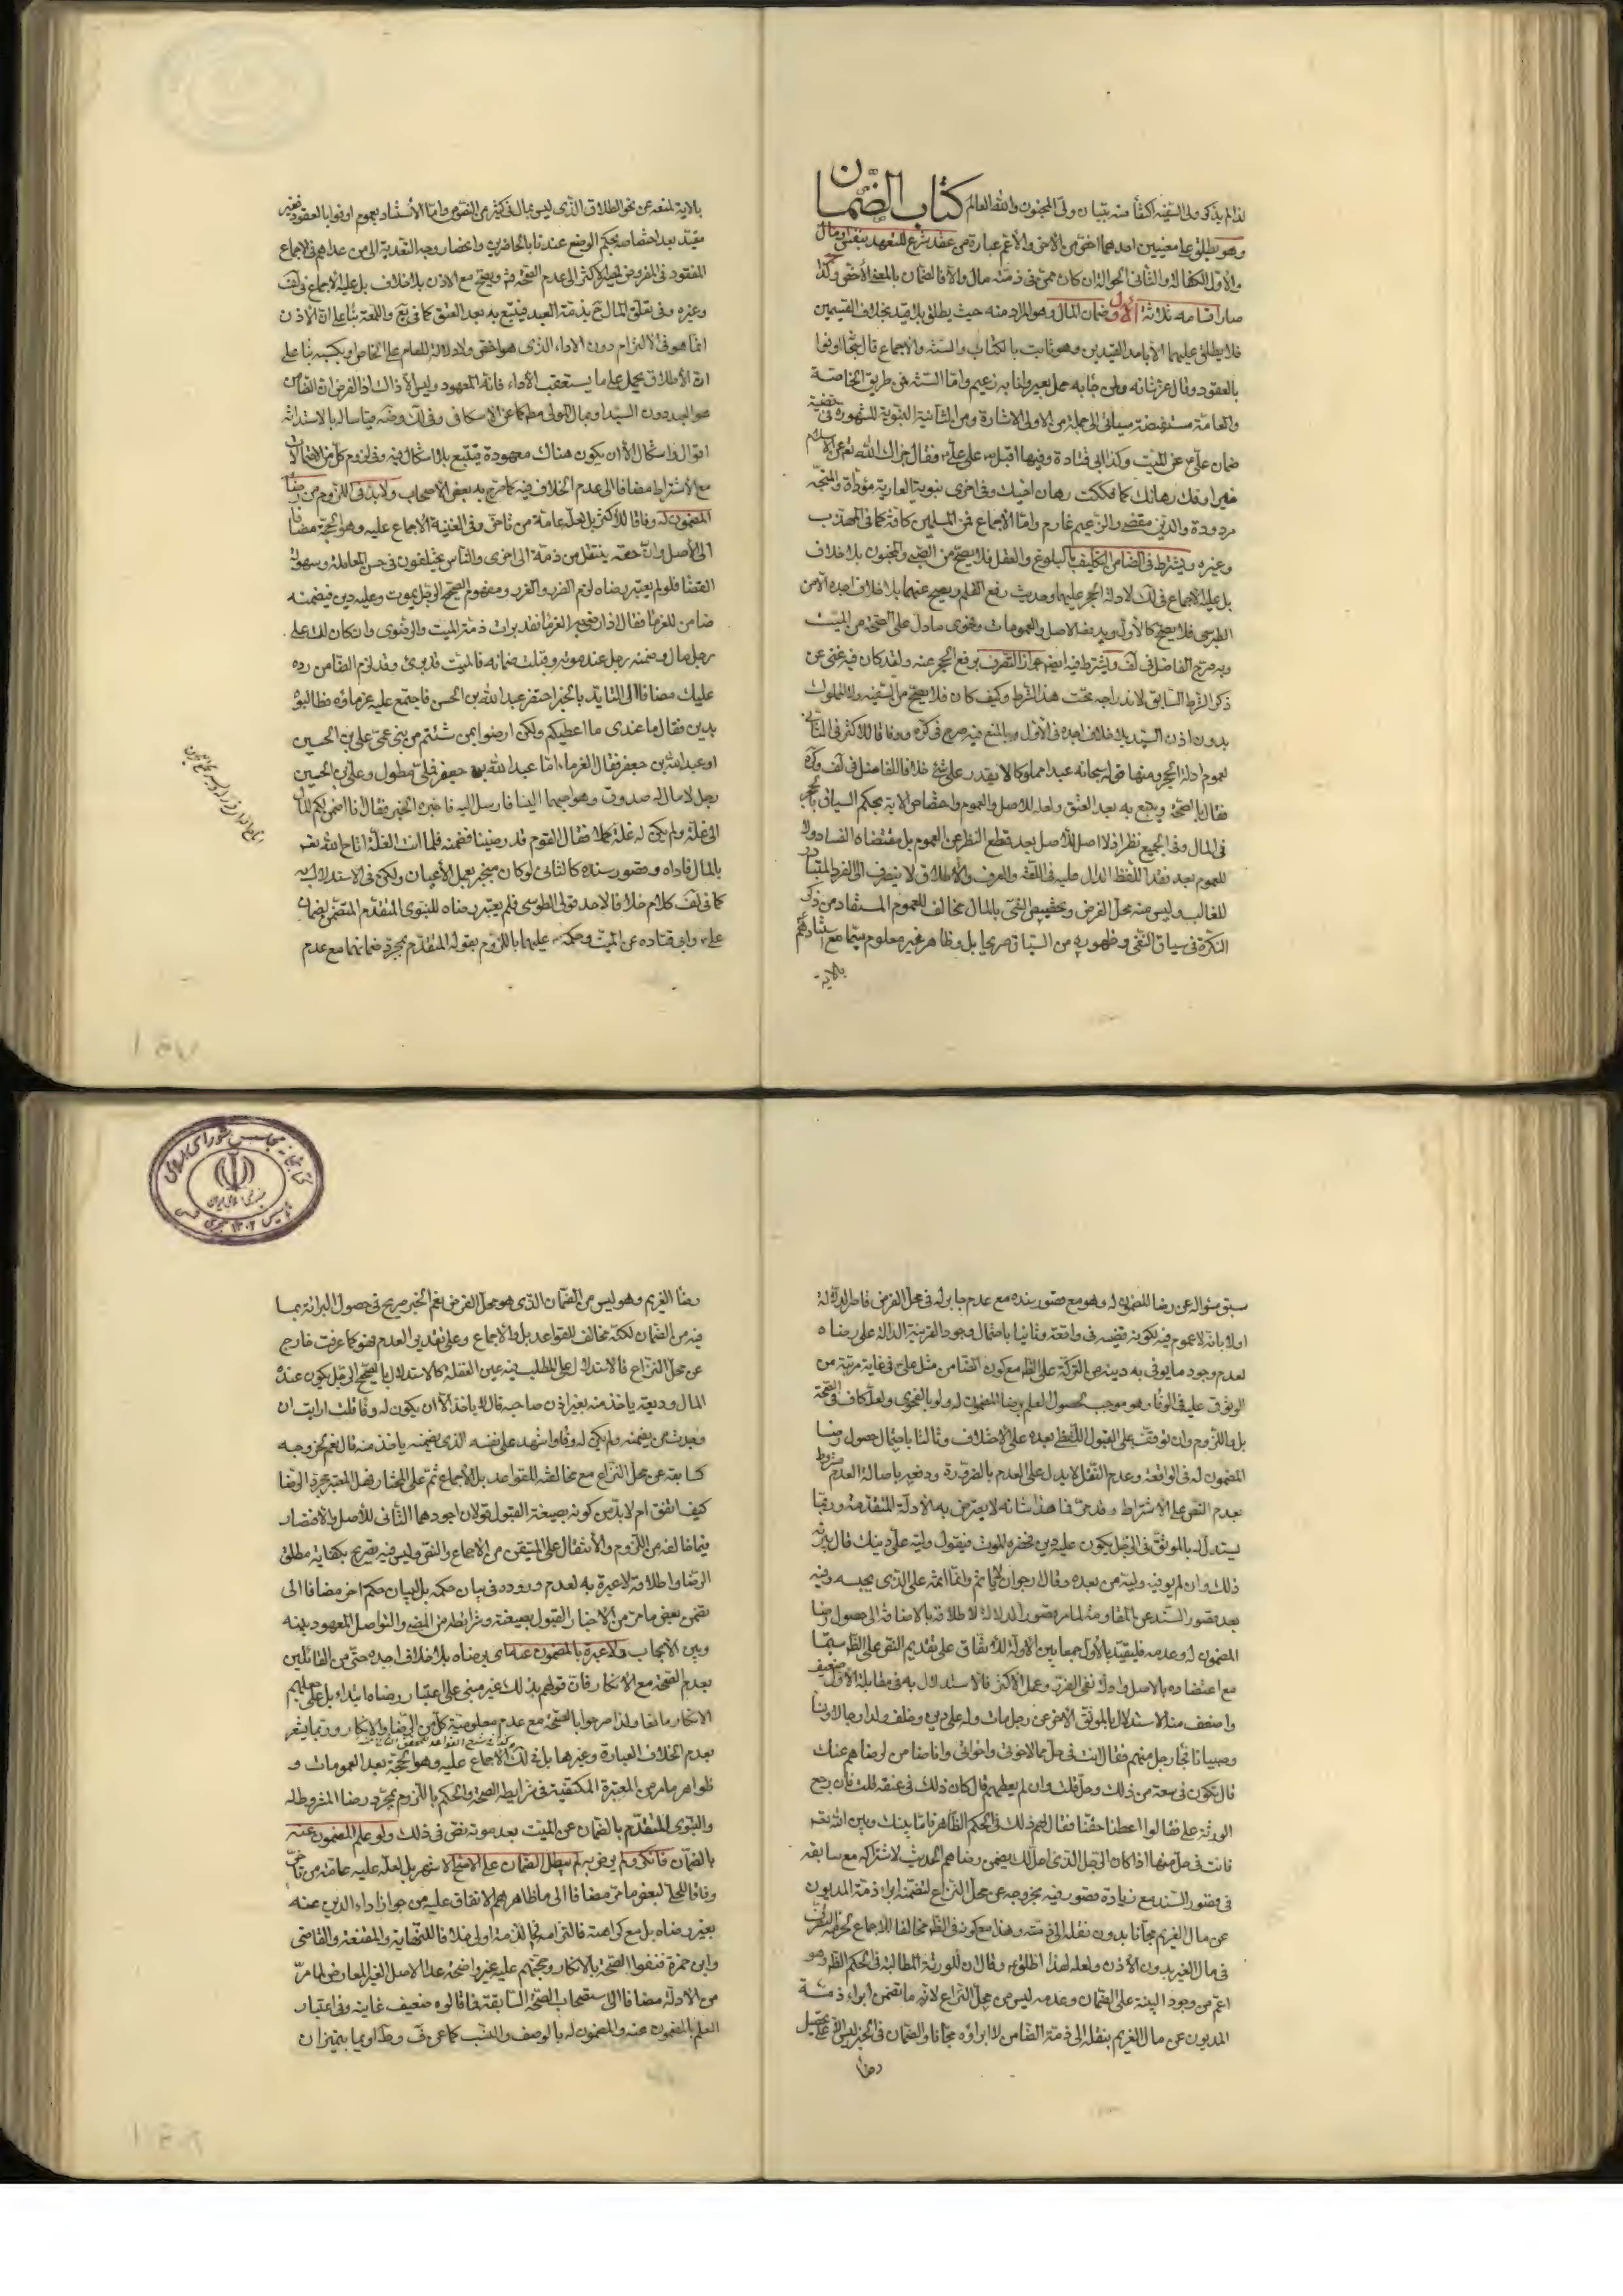 لذا لم يذكر ولى السفيه اكتفاء منه ببيان ولى المجنون والله العالم كتاب الضمان
وهو يطلق على معنيين احدهما اخص من الاخر والاعم عبارة عن عقد شرع للتعهد بنفس او مال
والاول الكفالة والثانى الحوالة ان كان ممن فى ذمته مال والا فالضمان بالمعنى الاخص ولذا
صار اقسامه ثلاثة الاول ضمان المال وهو المراد منه حيث يطلق بلا قيد بخلاف القسيمين
فلا يطلق عليهما الا باحد القيدين وهو ثابت بالكتاب والسنة والاجماع قال سبحانه اوفوا
بالعقود وقال عز شانه ولمن جاء به حمل بعير وانا به زعيم واما السنة فمن طريق الخاصة
والعامة مستفيضة سياتى الى جملة من الاولى الاشارة ومن الثانية النبوية المشهورة فى قضية
ضمان على عن الميت وكذا ابى قتادة وفيها اقبل ص على على ع فقال جزاك الله تعالى عن الاسلام
خيرا وفك رهانك كما فككت رهان اخيك وفى اخرى نبوية العارية مؤداة والمنحة
مردودة والدين مقضى والزعيم غارم واما الاجماع فمن المسلمين كافة كما فى المهذب
وغيره ويشترط فى الضامن التكليف بالبلوغ والعقل فلا يصح من الصبى والمجنون بلا خلاف
بل عليه الاجماع فى لف لادلة الحجر عليهما وحديث رفع القلم ويصح عنهما بلا خلاف اجده الا من
الطوسى فلا يصح كالاول ويدفعه الاصل والعمومات وفحوى ما دل على الصحة من الميت
وبه صرح الفاضل فى لف ويشترط فيه ايضا جواز التصرف برفع الحجر عنه ولقد كان فيه غنى عن
ذكر الشرط السابق لاندراجه تحت هذا الشرط وكيف كان فلا يصح من السفيه ولا المملوك
بدون اذن السيد بلا خلاف اجده فى الاول وبالمنع فيه صرح فى كره ووفاقا للاكثر فى الثانى
لعموم ادلة الحجر ومنها قوله سبحانه عبدا مملوكا لا يقدر على شئ خلافا للفاضل فى لف وكره
فقال بالصحة ويتبع به بعد العتق ولعله للاصل والعموم واختصاص الاية بحكم السياق بالحجر
فى المال وفى الجميع نظر اذ لا اصل للاصل بعد قطع النظر عن العموم بل مقتضاه الفساد ولا
للعموم بعد فقد اللفظ الدال عليه فى اللغة والعرف والاطلاق لا ينصرف الا الى الفرد المتبادر
الغالب وليس منه محل الفرض وتخصيص الشئ بالمال مخالف للعموم المستفاد من ذكر
النكرة فى سياق النفى وظهوره من السياق صريحا بل وظاهر غير معلوم سيما مع استشهادهم
بالاية
بالاية لمنعه عن نحو الطلاق الذى ليس بمال فى كثير من النصوص واما الاستناد بعموم اوفوا بالعقود فغير
مفيد بعد اختصاصه بحكم الوضع عندنا بالحاضرين وانحصار وجه التعدية الى من عداهم فى الاجماع
المفقود فى المفروض لمصير الاكثر الى عدم الصحة فيه ويصح مع الاذن بلا خلاف بل عليه الاجماع فى لف
وغيره وفى تعلق المال ح بذمة العبد فيتبع به بعد العتق كما فى يع واللمعة بناء على ان الاذن
انما هو فى الالتزام دون الاداء الذى هو اخص ولا دلالة للعام على الخاص او بكسبه بناء على
ان الاطلاق يحمل على ما يستعقب الاداء فانه المعهود وليس الا ذاك اذ الفرض ان الضامن
هو العبد دون السيد او بمال المولى مطلقا كما عن الاسكافى وفى لك وضه قياسا له بالاستدانة
اقوال واشكال الا ان يكون هناك معهودة فيتبع بلا اشكال فيه وفى لزوم كل من الاحتمالات
مع الاشتراط مضافا الى عدم الخلاف فيه كما صرح به بعض الاصحاب ولا بد فى اللزوم من رضا
المضمون له وفاقا للاكثر بل لعله عامة من تاخر وفى الغنية الاجماع عليه وهو الحجة مضافا
الى الاصل وان حقه ينتقل من ذمة الى اخرى والناس يختلفون فى حسن المعاملة وسهولة
القضاء فلو لم يعتبر رضاه لزم الضرر والغرر ومفهوم الصحيح الرجل يموت وعليه دين فيضمنه
ضامن للغرماء فقال اذا رضى به الغرماء فقد برات ذمة الميت والرضوى وان كان لك على
رجل مال وضمنه رجل عند موته وقبلت ضمانه فالميت قد برئ وقد لزم الضامن رده
عليك مضافا الى التايد بالخبر احتضر عبد الله بن الحسن فاجتمع عليه غرماؤه فطالبوه
بدين فقال ما عندى ما اعطيكم ولكن ارضوا بمن شئتم من بنى عمى على بن الحسين
او عبد الله بن جعفر فقال الغرماء اما عبد الله بن جعفر فملى مطول وعلى بن الحسين
رجل لا مال له صدوق وهو احبهما الينا فارسل اليه فاخبره الخبر فقال انا اضمن لكم المال
الى غلة ولم يكن له غلة كملا فقال القوم قد رضينا فضمنه فلما اتت الغلة اتاح الله تعالى
بالمال فاداه وقصور سنده كالثانى لو كان منجبر بعمل الاعيان ولكن فى الاستدلال به
كما فى لف كلام خلافا لاحد قولى الطوسى فلم يعتبر رضاه للنبوى المتقدم المتضمن لضمان
على ع وابى قتادة عن الميت وحكمه ص عليهما باللزوم بقوله المتقدم بمجرد ضمانهما مع عدم
سبق سؤاله عن رضا المضمون له وهو مع قصور سنده مع عدم جابر له فى محل الفرض قاصر الدلالة
اولا بانه لا عموم فيه لكونه قضية فى واقعة وثانيا باحتمال وجود القرينة الدالة على رضاه
لعدم وجود ما يوفى به دينه من التركة على الظاهر مع كون الضامن مثل على ع فى غاية مرتبة من
الوثوق عليه فى الوفاء وهو موجب لحصول العلم برضا المضمون له ولو بالفحوى ولعله كاف فى الصحة
بل واللزوم وان توقف على القبول اللفظى بعده على الاختلاف وثالثا باحتمال حصول رضا
المضمون له فى الواقعة وعدم النقل لا يدل على العدم بالضرورة ودفعه باصالة العدم مشروط
بعدم النص على الاشتراط وقد مر فما هذا شانه لا يعترض به الادلة المتقدمة وربما
يستدل له بالموثق فى الرجل يكون عليه دين فحضره الموت فيقول وليه على دينك قال يبرئه
ذلك وان لم يوفه وليه من بعده وقال ارجوا ان لا ياثم وانما اثمه على الذى يحبسه وفيه
بعد قصور السند عن المقاومة لما مر قصور الدلالة لاطلاقه بالاضافة الى حصول رضا
المضمون له وعدمه فليقيد بالاول جمعا بين الادلة للاتفاق على تقديم النص على الظاهر سيما
مع اعتضاده بالاصل وادلة نفى الضرر وعمل الاكثر فالاستدلال به فى مقابلة الاول ضعيف
واضعف منه الاستدلال بالموثق الاخر عن رجل مات وله على دين وخلف ولدا رجالا ونساء
وصبيانا فجاء رجل منهم فقال انت فى حل مما لاخوتى واخواتى وانا ضامن لرضاهم عنك
قال تكون فى سعة من ذلك وحل قلت وان لم يعطهم قال كان ذلك فى عنقه قلت فان رجع
الورثة على فقالوا اعطنا حقنا فقال لهم ذلك فى الحكم الظاهر فاما بينك وبين الله تعالى
فانت فى حل منها اذا كان الرجل الذى احل لك يضمن رضاهم الحديث لاشتراكه مع سابقه
فى قصور السند مع زيادة قصور فيه بخروجه عن محل النزاع لتضمنه ابراء ذمة المديون
عن مال الغريم مجانا بدون نقله الى ذمته وهذا مع كونه فى الظاهر مخالفا للاجماع لحرمة التصرف
فى مال الغير بدون الاذن ولعله لهذا اطلق ع وقال ان للورثة المطالبة فى الحكم الظاهر وهو
اعم من وجود البينة على الضمان وعدمه ليس من محل النزاع لانه ما تضمن ابراء ذمة
المديون عن مال الغريم بنقله الى ذمة الضامن لا ابراؤه مجانا والضمان فى الخبر ليس الا على تحصيل
رضا
رضا الغريم وهو ليس من الضمان الذى هو محل الفرض نعم الخبر صريح فى حصول البراءة بما
فيه من الضمان لكنه مخالف للقواعد بل والاجماع وعلى تقدير العدم فهو كما عرفت خارج
عن محل النزاع فالاستدلال على المطلب به عين الغفلة كالاستدلال بالصحيح الرجل يكون عنده
المال وديعة ياخذ منه بغير اذن صاحبه قال لا ياخذ الا ان يكون له وفاء قلت ارايت ان
وجدت من يضمنه ولم يكن له وفاء واشهد على نفسه الذى يضمنه ياخذ منه قال نعم لخروجه
كسابقه عن محل النزاع مع مخالفته للقواعد بل الاجماع ثم على المختار فهل المعتبر مجرد الرضا
كيف اتفق ام لا بد من كونه بصيغة القبول قولان اجودهما الثانى للاصل والاقتصار
فيما خالفه من اللزوم والانتقال على المتيقن من الاجماع والنص وليس فيه تصريح بكفاية مطلق
الرضا واطلاقه لا عبرة به لعدم وروده فى بيان حكمه بل لبيان حكم اخر مضافا الى
تضمن بعض ما مر من الاخبار القبول بصيغته وشرائطه من المضى والتواصل المعهود بينه
وبين الايجاب ولا عبرة بالمضمون عنه اى برضاه بلا خلاف اجده حتى من القائلين
بعدم الصحة مع الانكار فان قولهم بذلك غير مبنى على اعتبار رضاه ابتداء بل على جعلهم
الانكار مانعا ولذا صرحوا بالصحة مع عدم معلومية كل من الرضا والانكار وربما يشعر
بعدم الخلاف العبارة وغيرها بل فى لك الاجماع عليه وهو الحجة بعد العمومات و
ظواهر ما مر من المعتبرة المكتفية فى شرائط الصحة والحكم باللزوم بمجرد رضا المضمون له
والنبوى المتقدم بالضمان عن الميت بعد موته نص فى ذلك ولو علم المضمون عنه
بالضمان فانكر ولم يرض به لم يبطل الضمان على الاصح الاشهر بل لعله عليه عامة من تاخر
وفاقا للحلى لبعض ما مر مضافا الى ما ظاهرهم الاتفاق عليه من جواز اداء الدين عنه
بغير رضاه بل مع كراهته فالتزامه فى الذمة اولى خلافا للنهاية والمقنعة والقاضى
وابن حمزة فنفوا الصحة بالانكار وحجتهم عليه غير واضحة عدا الاصل الغير المعارض لما مر
من الادلة مضافا الى استصحاب الصحة السابقة فما قالوه ضعيف غايته وفى اعتبار
العلم بالمضمون عنه والمضمون له بالوصف والنسب كما عن ف وط او بما يتميزان
كتابخانه مجلس شورای اسلامی